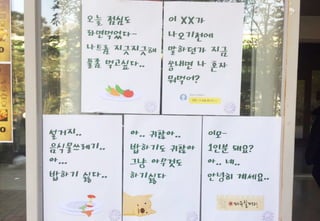 오늘 점심도
라면먹었다..
나트륨 지긋지긋해
풀좀 먹고싶다..
이 XX가
나오기전에
말하던가 지금
쌩내면 나 혼자
뭐먹어?
설거지..
음식물쓰레기..
아...
밥하기 싫다..
아.. 귀찮아..
밥하기도 귀찮아
그냥 아무것도
하기싫다
이모~
1인분 돼요?
아.. 네..
안녕히 계세요..